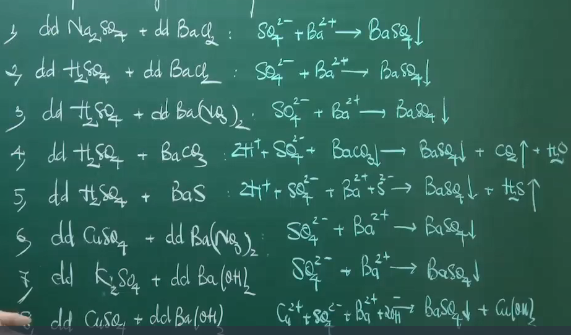 1, dd Na₂SO₄ + dd BaCl₂ : SO₄²⁻ + Ba²⁺ → BaSO₄↓
2, dd H₂SO₄ + dd BaCl₂ : SO₄²⁻ + Ba²⁺ → BaSO₄↓
3, dd H₂SO₄ + dd Ba(NO₃)₂ : SO₄²⁻ + Ba²⁺ → BaSO₄↓
4, dd H₂SO₄ + BaCO₃ : 2H⁺ + SO₄²⁻ + BaCO₃↓ → BaSO₄↓ + CO₂↑ + H₂O
5, dd H₂SO₄ + BaS : 2H⁺ + SO₄²⁻ + Ba²⁺ + S²⁻ → BaSO₄↓ + H₂S↑
6, dd CuSO₄ + dd Ba(NO₃)₂ : SO₄²⁻ + Ba²⁺ → BaSO₄↓
7, dd K₂SO₄ + dd Ba(OH)₂ SO₄²⁻ + Ba²⁺ → BaSO₄↓
dd CuSO₄ + dd Ba(OH) Cu²⁺ + SO₄²⁻ + Ba²⁺ + 2OH⁻ → BaSO₄↓ + Cu(OH)₂